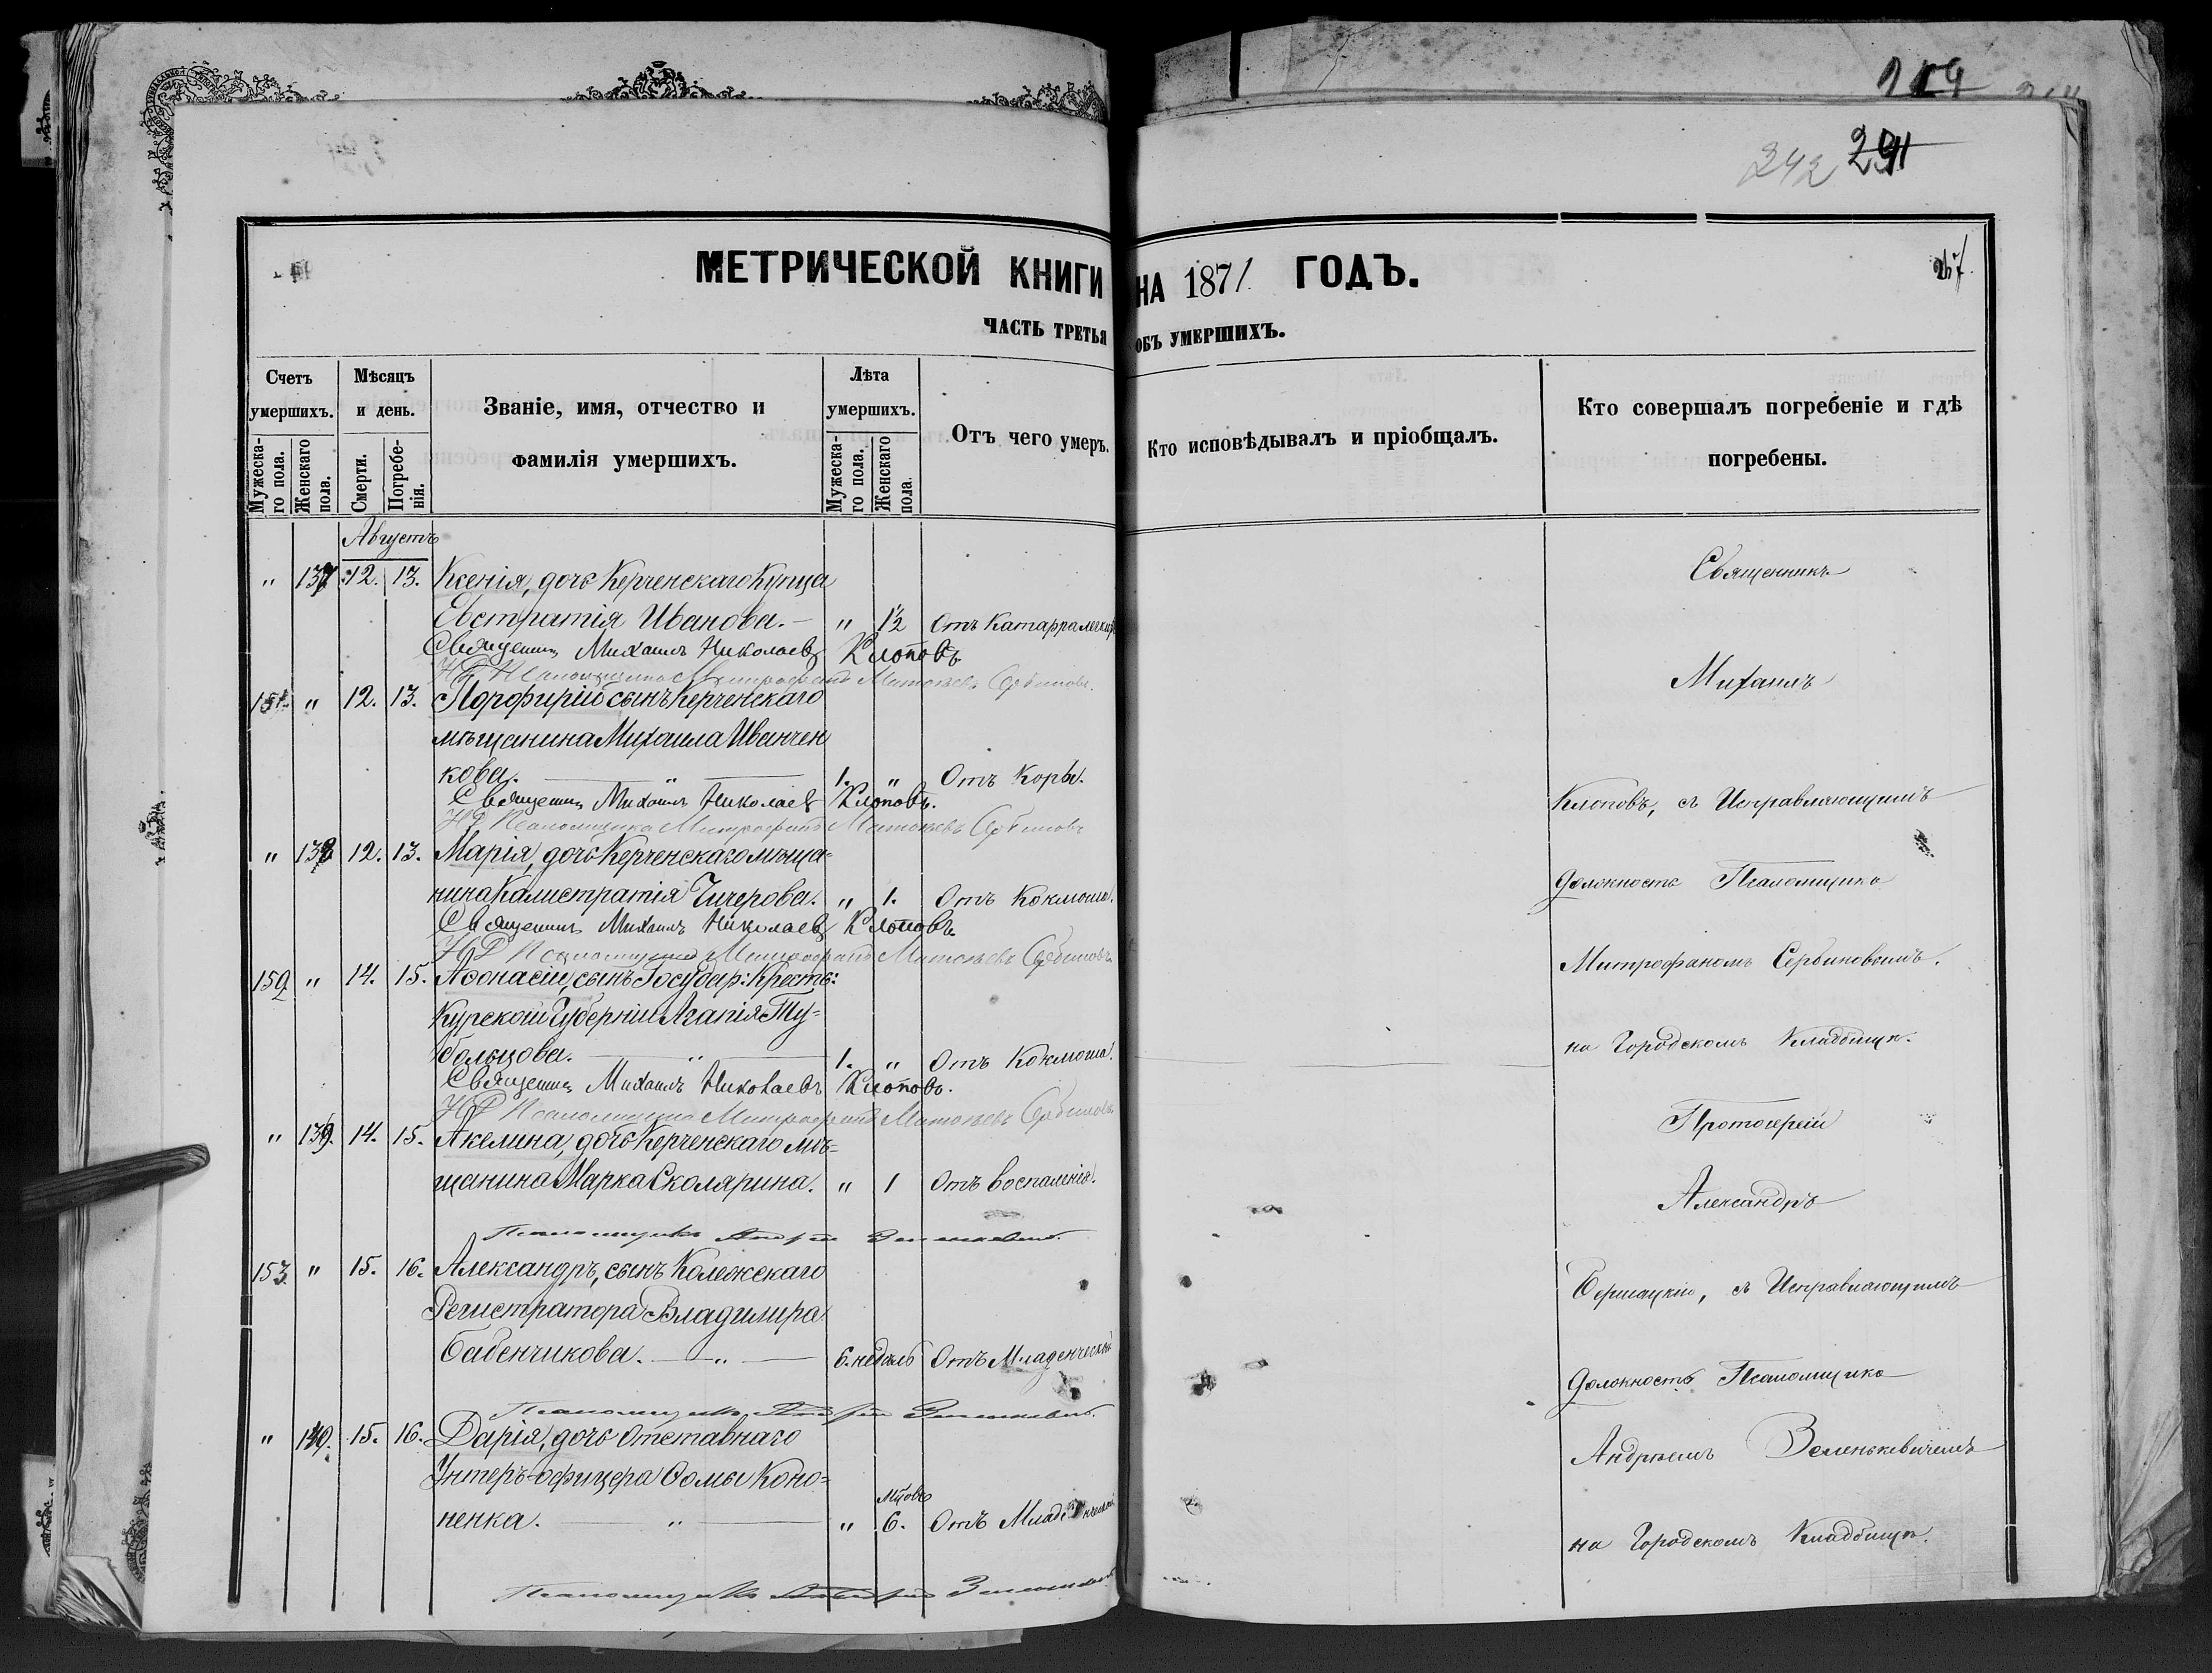 119
242 291
МЕТРИЧЕСКОЙ КНИГИ НА 1871 ГОДЪ.
267.
ЧАСТЬ ТРЕТЬЯ ОБЪ УМЕРШИХЪ.
Счетъ умершихъ.
Мужеска-го пола.
Женскаго пола.
Мѣсяцъ и день.
Смерти.
Погребе-нія.
Званіе, имя, отчество и фамилія умершихъ.
Лѣта умершихъ.
Мужеска-го пола.
Женскаго пола.
Отъ чего умеръ.
Кто исповѣдывалъ и пріобщалъ.
Кто совершалъ погребеніе и гдѣ погребены.
Августъ
" 137 12. 13. Ксенія, дочь Керченскаго Купца
Евстратія Иванова. — " 1½ Отъ Катарра легкихъ
Священникъ Михаилъ Николаевъ Клоповъ.
И Д Псаломщика Митрофанъ Матвѣевъ Сербиновъ.
151. " 12. 13. Порфирій сынъ Керченскаго
мѣщанина Михаила Иванчен
кова. — " — 1. " Отъ Кори.
Священникъ Михаилъ Николаевъ Клоповъ.
И Д Псаломщика Митрофанъ Матвѣевъ Сербиновъ
" 138 12. 13. Марія, дочь Керченскаго мѣща-
нина Калистратія Чигерова. " 1. Отъ Коклюша.
Священникъ Михаилъ Николаевъ Клоповъ.
И Д Псаломщика Митрофанъ Матвѣевъ Сербиновъ
152 " 14. 15. Аѳонасій, сынъ Государ: Крестъ:
Курской Губерніи Агапія Ту-
больцова. — " — 1. " Отъ Коклюша.
Священникъ Михаилъ Николаевъ Клоповъ.
И Д Псаломщика Митрофанъ Матвѣевъ Сербиновъ
" 139. 14. 15. Акелина, дочь Керченскаго мѣ-
щанина Марка Сколярина. " 1 Отъ воспаленія.
Псаломщикъ Андрей Зеленкевичъ.
153. " 15. 16. Александръ, сынъ Колежскаго
Регистратора Владимира
Бабенчикова. — " — 6. недѣль Отъ Младенческой
Псаломщикъ Андрей Зеленкевичъ.
" 140. 15. 16. Дарія, дочь Отставнаго
Унтеръ-офицера Ѳомы Коно-
ненка. — " — " 6. мцовъ Отъ Младенческой
Псаломщикъ Андрей Зеленкевичъ
Священникъ
Михаилъ
Клоповъ, съ Исправляющимъ
должность Псаломщика
Митрофаномъ Сербиновымъ.
на Городскомъ Кладбищѣ.
Протоіерей
Александръ
Бершацкій, съ Исправляющимъ
должность Псаломщика
Андреемъ Зеленкевичемъ
на Городскомъ Кладбищѣ.